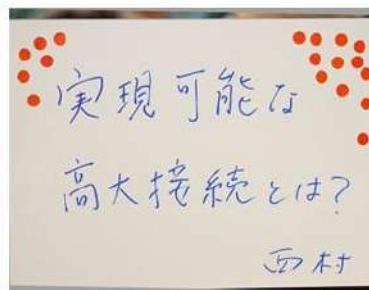 実現可能な
高大接続とは?
西村